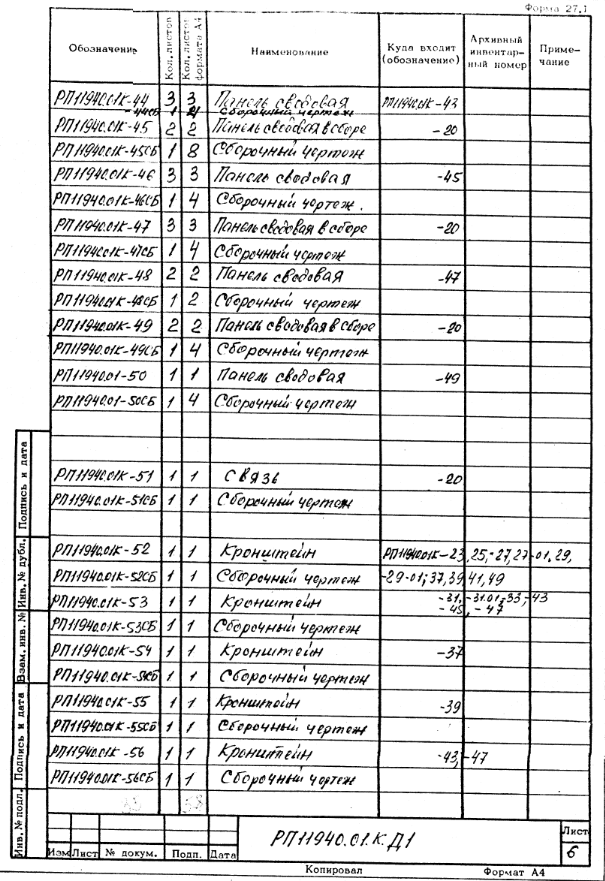 Форма 27.1
Обозначение Кол. листов Кол. листов формата А4 Наименование Куда входит (обозначение) Архивный инвентарный номер Примечание
РП11940.01К-44 3 3 Панель сводовая РП11940.01К-43
-44СБ 1 Сборочный чертеж
РП11940.01К-45 2 2 Панель сводовая в сборе -20
РП11940.01К-45СБ 1 8 Сборочный чертеж
РП11940.01К-46 3 3 Панель сводовая -45
РП11940.01К-46СБ 1 4 Сборочный чертеж.
РП11940.01К-47 3 3 Панель сводовая в сборе -20
РП11940.01К-47СБ 1 4 Сборочный чертеж
РП11940.01К-48 2 2 Панель сводовая -47
РП11940.01К-48СБ 1 2 Сборочный чертеж
РП11940.01К-49 2 2 Панель сводовая в сборе -20
РП11940.01К-49СБ 1 4 Сборочный чертеж
РП11940.01-50 1 1 Панель сводовая -49
РП11940.01-50СБ 1 4 Сборочный чертеж
РП11940.01К-51 1 1 Связь -20
РП11940.01К-51СБ 1 1 Сборочный чертеж
РП11940.01К-52 1 1 Кронштейн РП11940.01К-23, 25,-27,27-01,29,
РП11940.01К-52СБ 1 1 Сборочный чертеж -29-01,37,39,41,49
РП11940.01К-53 1 1 Кронштейн -31,-31.01,-33,-43
-45, -47
РП11940.01К-53СБ 1 1 Сборочный чертеж
РП11940.01К-54 1 1 Кронштейн -37
РП11940.01К-54СБ 1 1 Сборочный чертеж
РП11940.01К-55 1 1 Кронштейн -39
РП11940.01К-55СБ 1 1 Сборочный чертеж
РП11940.01К-56 1 1 Кронштейн -43,-47
РП11940.01К-56СБ 1 1 Сборочный чертеж
Инв. № подл. Подпись и дата Взам. инв. № Инв. № дубл. Подпись и дата
РП11940.01.К.Д1
Лист
6
Изм Лист № докум. Подп. Дата
Копировал Формат А4